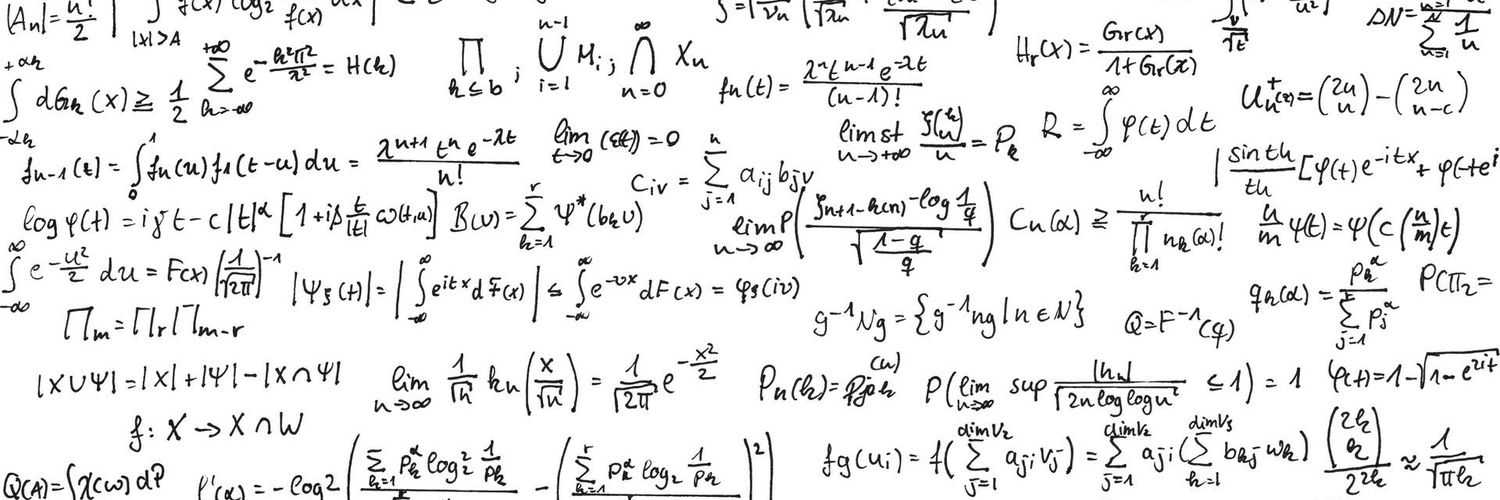 |Aₙ| = n!/2
∫_{|x|>A} f(x) log₂ f(x)
ΔN =
∑_{n=1}^{N} 1/n
∑_{k=-∞}^{+∞} e^{-k²π²/λ²} = H(k)
∏_{k≤b} ; ⋃_{i=1}^{n-1} M_i ; ⋂_{n=0}^{∞} Xₙ
H_r(x) = G_r(x)/(1+G_r(x))
dG_k(x) ≥ 1/2
fₙ(t) = λⁿ t^{n-1} e^{-λt}/(n-1)!
Uₙ⁺(z) = (2n n) - (2n n-c)
f_{n-1}(t) = ∫₀¹ fₙ(u) f₁(t-u) du = λ^{n+1} tⁿ e^{-λt}/n!
lim_{t→0} = 0
c_{iv} = ∑_{j=1}^{n} a_{ij} b_{jv}
lim st_{n→+∞} ζ(k/n)/n = P_k
R = ∫_{-∞}^{∞} φ(t) dt
| sin th/th [φ(t) e^{-itx} + φ(-t) e^{i
log φ(t) = iγt - c|t|^α [1+iβ t/|t| ω(t,α)]
B(v) = ∑_{k=1}^{r} Ψ*(b_k v)
lim_{n→∞} P( (ζ_{n+1-k(n)} - log 1/q) / √((1-q)/q) )
Cₙ(α) ≥ n!/∏_{k=1} n_k(α)!
n/m ψ(t) = ψ(c(n/m)t)
∫_{-∞}^{∞} e^{-u²/2} du = F(x) (1/√2π)^{-1}
|Ψ_ξ(t)| = |∫_{-∞}^{∞} e^{itx} dF(x)| ≤ ∫_{-∞}^{∞} e^{-vx} dF(x) = φ_ξ(iv)
q_k(α) = p_k^α / ∑_{j=1}^{r} p_j^α
P(Π₂ =
∏m = ∏r ∏m-r
g⁻¹Ng = {g⁻¹ng | n ∈ N}
Q = F⁻¹(q)
|X ∪ Ψ| = |X| + |Ψ| - |X ∩ Ψ|
lim_{n→∞} 1/√n kₙ(x/√n) = 1/√2π e^{-x²/2}
Pₙ(k) = P_{jk}^{(n)}
P(lim_{n→∞} sup |hₙ|/√(2n log log n) ≤ 1) = 1
φ(t) = 1 - √(1 - e^{2it}
f: X → X ∩ W
Q(A) = ∫χ(ω) dP
l'(α) = -log2 ( ∑_{k=1} p_k^α log₂² 1/p_k - ( ∑_{k=1}^{r} p_k^α log₂ 1/p_k )²
fg(u_i) = f(∑_{j=1}^{dim V₂} a_{ji} v_j) = ∑_{j=1}^{dim V₂} a_{ji} (∑_{k=1}^{dim V₃} b_{kj} w_k)
(2k k)/2^{2k} ≈ 1/√πk